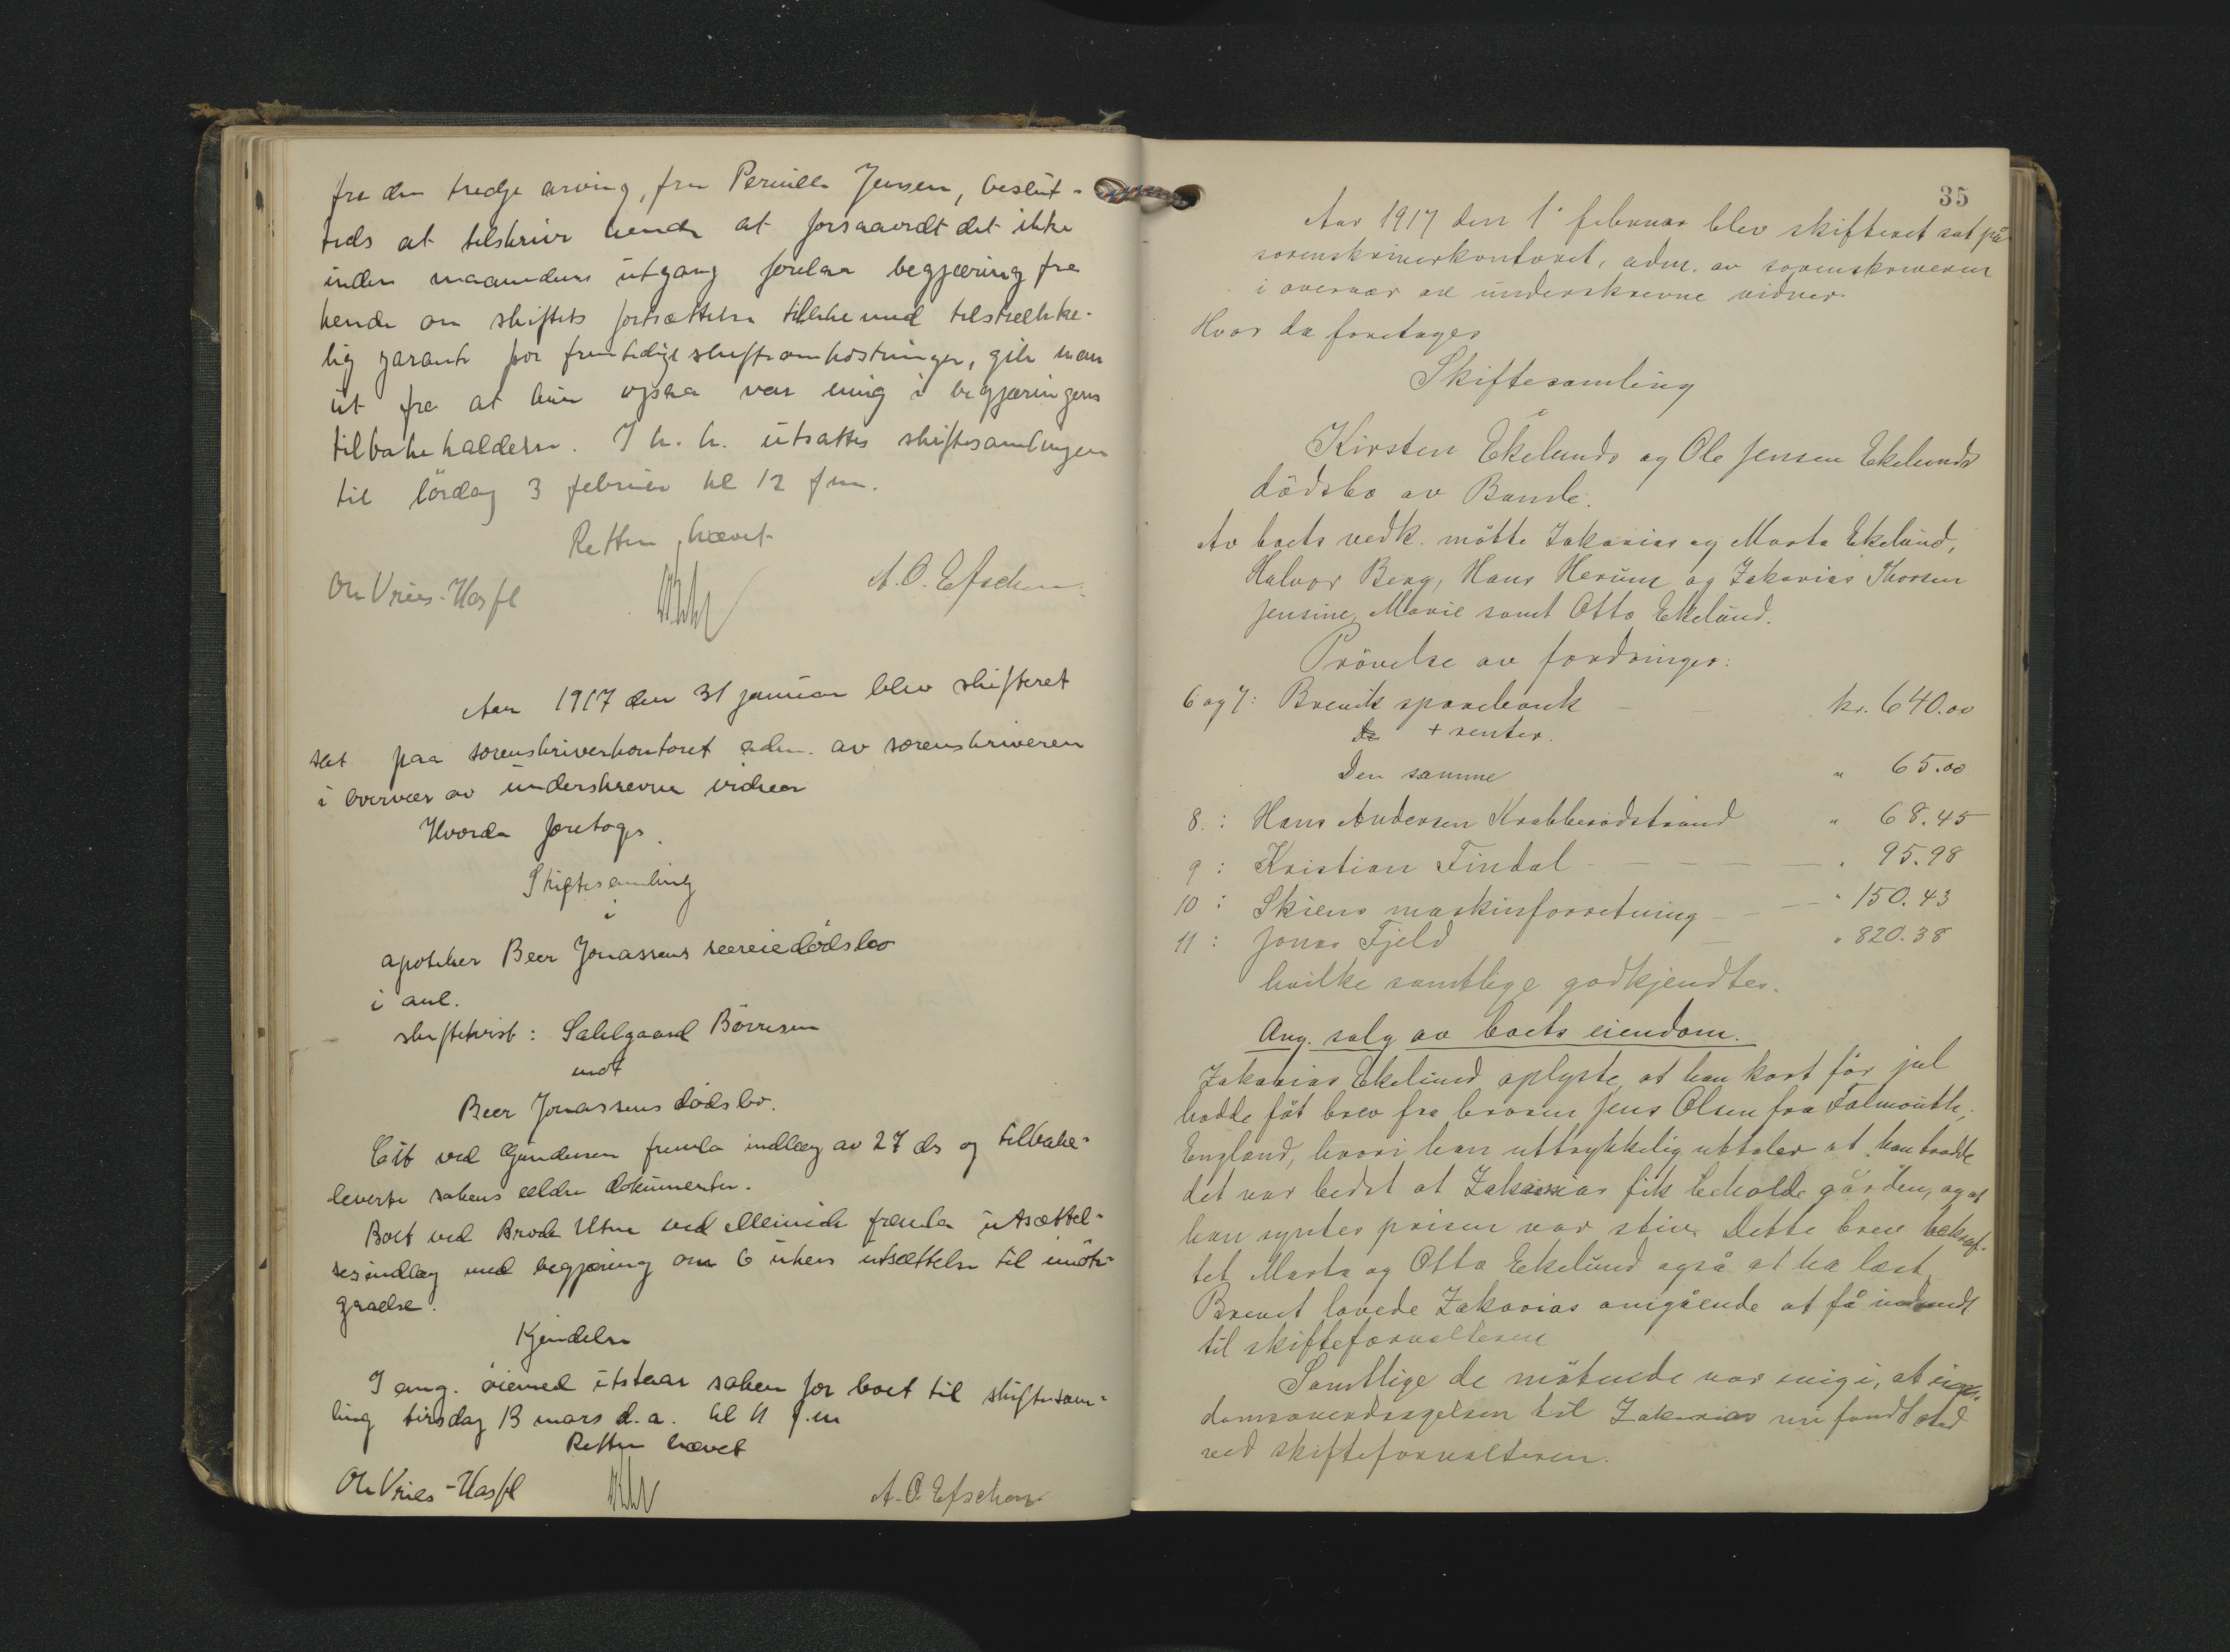 fra den tredje arving, fru Pernille Jensen, beslut-
teds at tilskrive hende at forsaavidt det ikke
inden maanedens utgang forelaa begjæring fra
hende om skiftets fortsættelse tillike med tilstrække-
lig garanti for fremtidige skifteomkostninger, gik man
ut fra at hun ogsaa var enig i begjæringens
tilbakekaldelse. I h. h. utsattes skiftesamlingen
til lördag 3 februar kl 12 fm.
Retten hævet
A.O. Efschen
Aar 1917 den 31 januar blev skifteret
sat paa sorenskriverkontoret adm. av sorenskriveren
i overvær av underskrevne vidner
Hvorda foretoges
Skiftesamling
i
apoteker Beer Jonassens særeiedødsbo
i anl.
skiftetvist: Sahlgaard Börresen
mot
Beer Jonassens dödsbo.
Cit ved Gundersen fremla indlæg av 27 ds og tilbake-
leverte sakens ældre dokumenter.
Boet ved Brock Utne ved fremla utsættel-
sesindlæg med begjæring om 6 ukers utsættelse til imöte-
gaaelse.
Kjendelse
I ang. öiemed utstaar saken for boet til skiftesam-
ling tirsdag 13 mars d.a. kl 11 f.m
Retten hævet
A.O. Efschen
35
Aar 1917 den 1' februar blev skifteret sat på
sorenskriverkontoret, adm. av sorenskriveren
i overvær av underskrevne vidner.
Hvor da foretages
Skiftesamling
i
Kirsten Ekelunds og Ole Jensen Ekelunds
dödsbo av Bamle.
Av boets vedk. mötte Zakarias og Marta Ekelund,
Halvor Berg, Hans Herum og Zakarias Thorsen
Jensine, Marie samt Otto Ekelund.
Prövelse av fordringer:
6 og 7: Brevik sparebank kr. 640.00
+ renter.
Den samme " 65.00
8.: Hans Andersen Krabberödstrand " 68.45
9: Kristian Findal " 95.98
10: Skiens maskinforretning " 150.43
11: Jonas Fjeld " 820.38
hvilke samtlige godkjendtes.
Ang. salg av boets eiendom.
Zakarias Ekelund oplyste, at han kort för jul
hadde fåt brev fra broren Jens Olsen fra Falmouth,
England, hvori han uttrykkelig uttaler at han trodde
det var bedst at Zakarias fik beholde gården, og at
han syntes prisen var stiv. Dette brev bekræf-
tet Marta og Otto Ekelund også at ha læst.
Brevet lovede Zakarias omgående at få indsendt
til skifteforvalteren
Samtlige de mötende var enig i, at eien-
domsoverdragelsen til Zakarias nu fandt sted
ved skifteforvalteren.